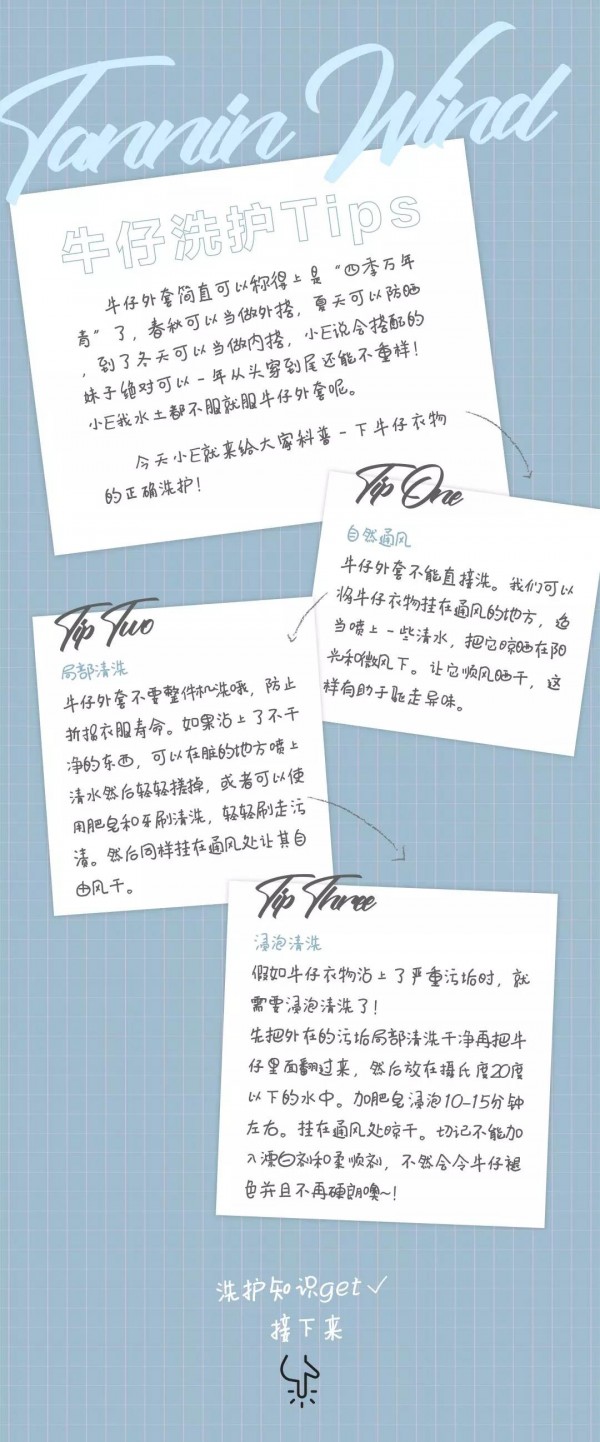 Tannin Wind
牛仔洗护Tips
牛仔外套简直可以称得上是“四季万年
青”了，春秋可以当做外搭，夏天可以防晒
，到了冬天可以当做内搭，小E说会搭配的
妹子绝对可以一年从头穿到尾还能不重样！
小E我水土都不服就服牛仔外套呢。
今天小E就来给大家科普一下牛仔衣物
的正确洗护！
Tip One
自然通风
牛仔外套不能直接洗。我们可以
将牛仔衣物挂在通风的地方，适
当喷上一些清水，把它晾晒在阳
光和微风下。让它顺风晒干，这
样有助于驱走异味。
Tip Two
局部清洗
牛仔外套不要整件机洗哦，防止
折损衣服寿命。如果沾上了不干
净的东西，可以在脏的地方喷上
清水然后轻轻搓掉，或者可以使
用肥皂和牙刷清洗，轻轻刷走污
渍。然后同样挂在通风处让其自
由风干。
Tip Three
浸泡清洗
假如牛仔衣物沾上了严重污垢时，就
需要浸泡清洗了！
先把外在的污垢局部清洗干净再把牛
仔里面翻过来，然后放在摄氏度20度
以下的水中。加肥皂浸泡10-15分钟
左右。挂在通风处晾干。切记不能加
入漂白剂和柔顺剂，不然会令牛仔褪
色并且不再硬朗噢~！
洗护知识get✓
接下来